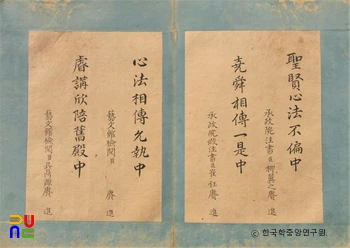 聖賢心法不偏中
承政院注書臣柳翼之賡進
堯舜相傳一是中
承政院假注書臣崔
賡進
心法相傳允執中
藝文館檢閱臣
賡進
睿講欣陪舊殿中
藝文館檢閱臣吳
賡進
ⓒ한국학중앙연구원